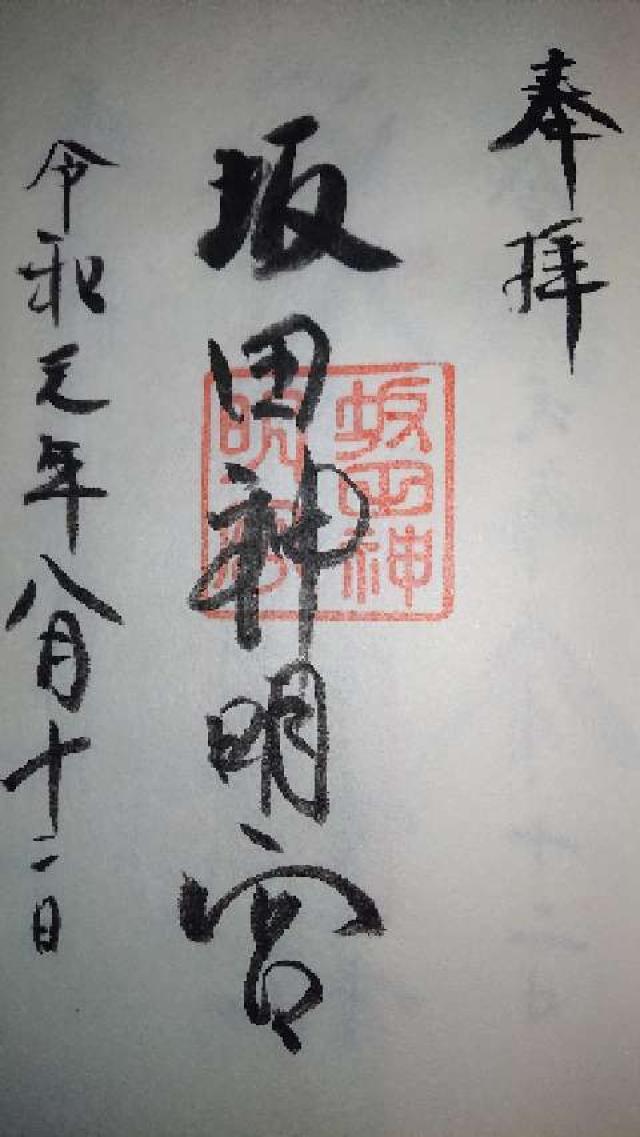 奉拝
坂田神明宮
坂田神
明宮
令和元年八月十二日